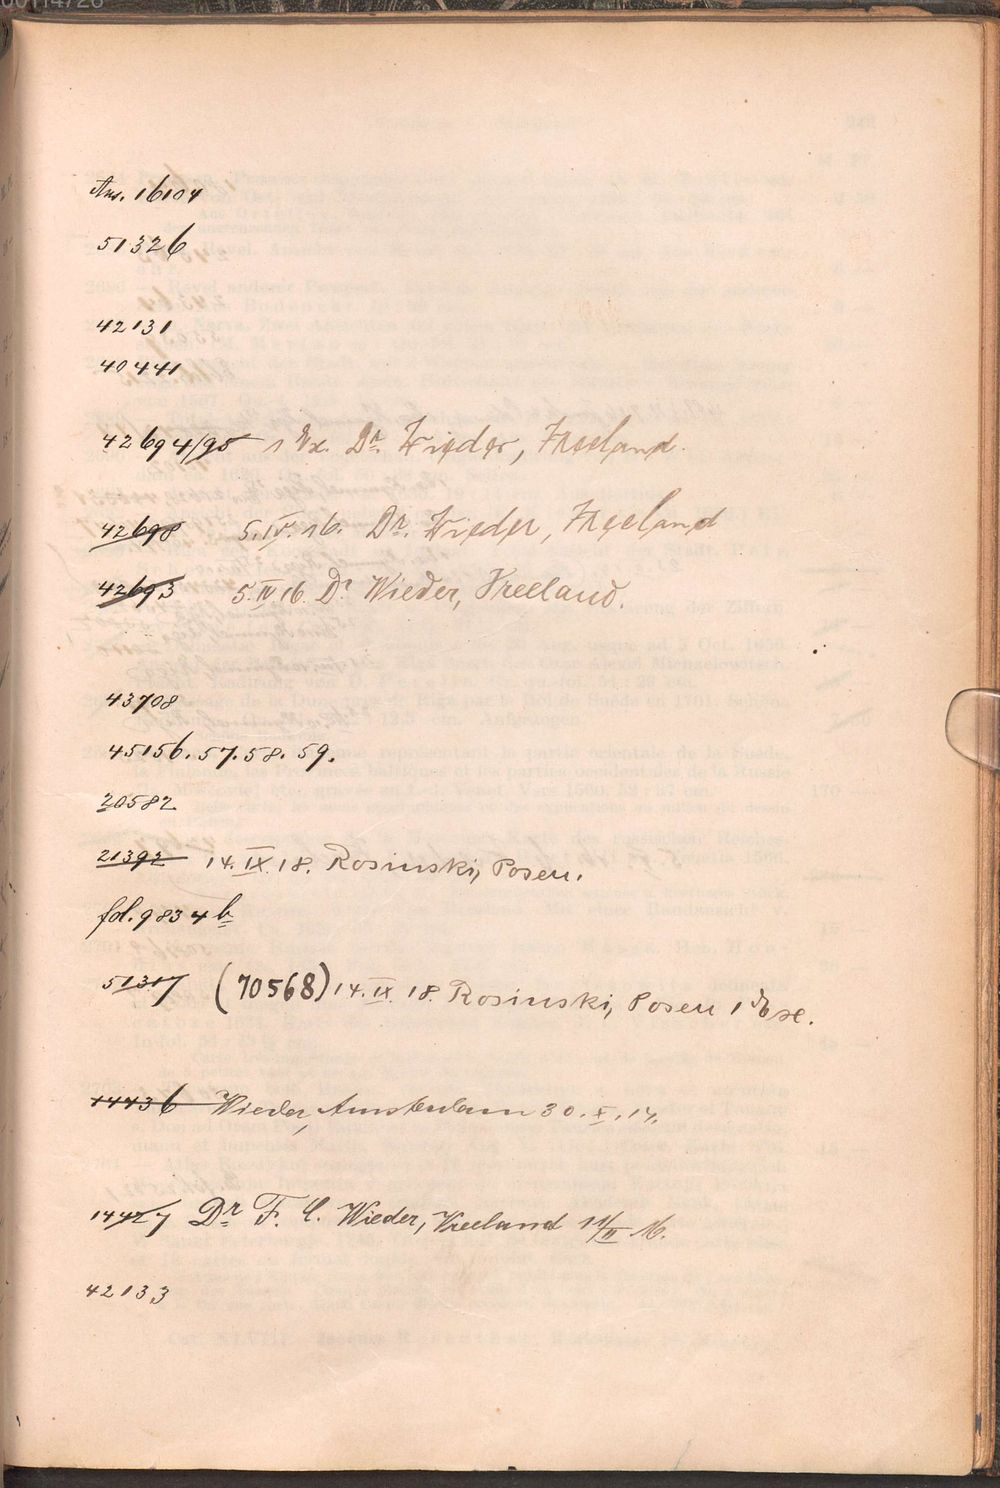 Ans. 16104
51326
42131
40441
42694/95 1 Ex. Dr. Wieder, Vreeland.
42698 5.IV.16. Dr. Wieder, Vreeland
42693 5.IV.16. Dr Wieder, Vreeland.
43708
45156.57.58.59.
20582
21392 14.IX.18. Rosinski, Posen.
fol. 9834 b
51317 (70568) 14.IX.18. Rosinski, Posen 1 Ex.
14436 Wieder, Amsterdam 30.X.14.
14427 Dr F. C. Wieder, Vreeland 11/II 16.
42133